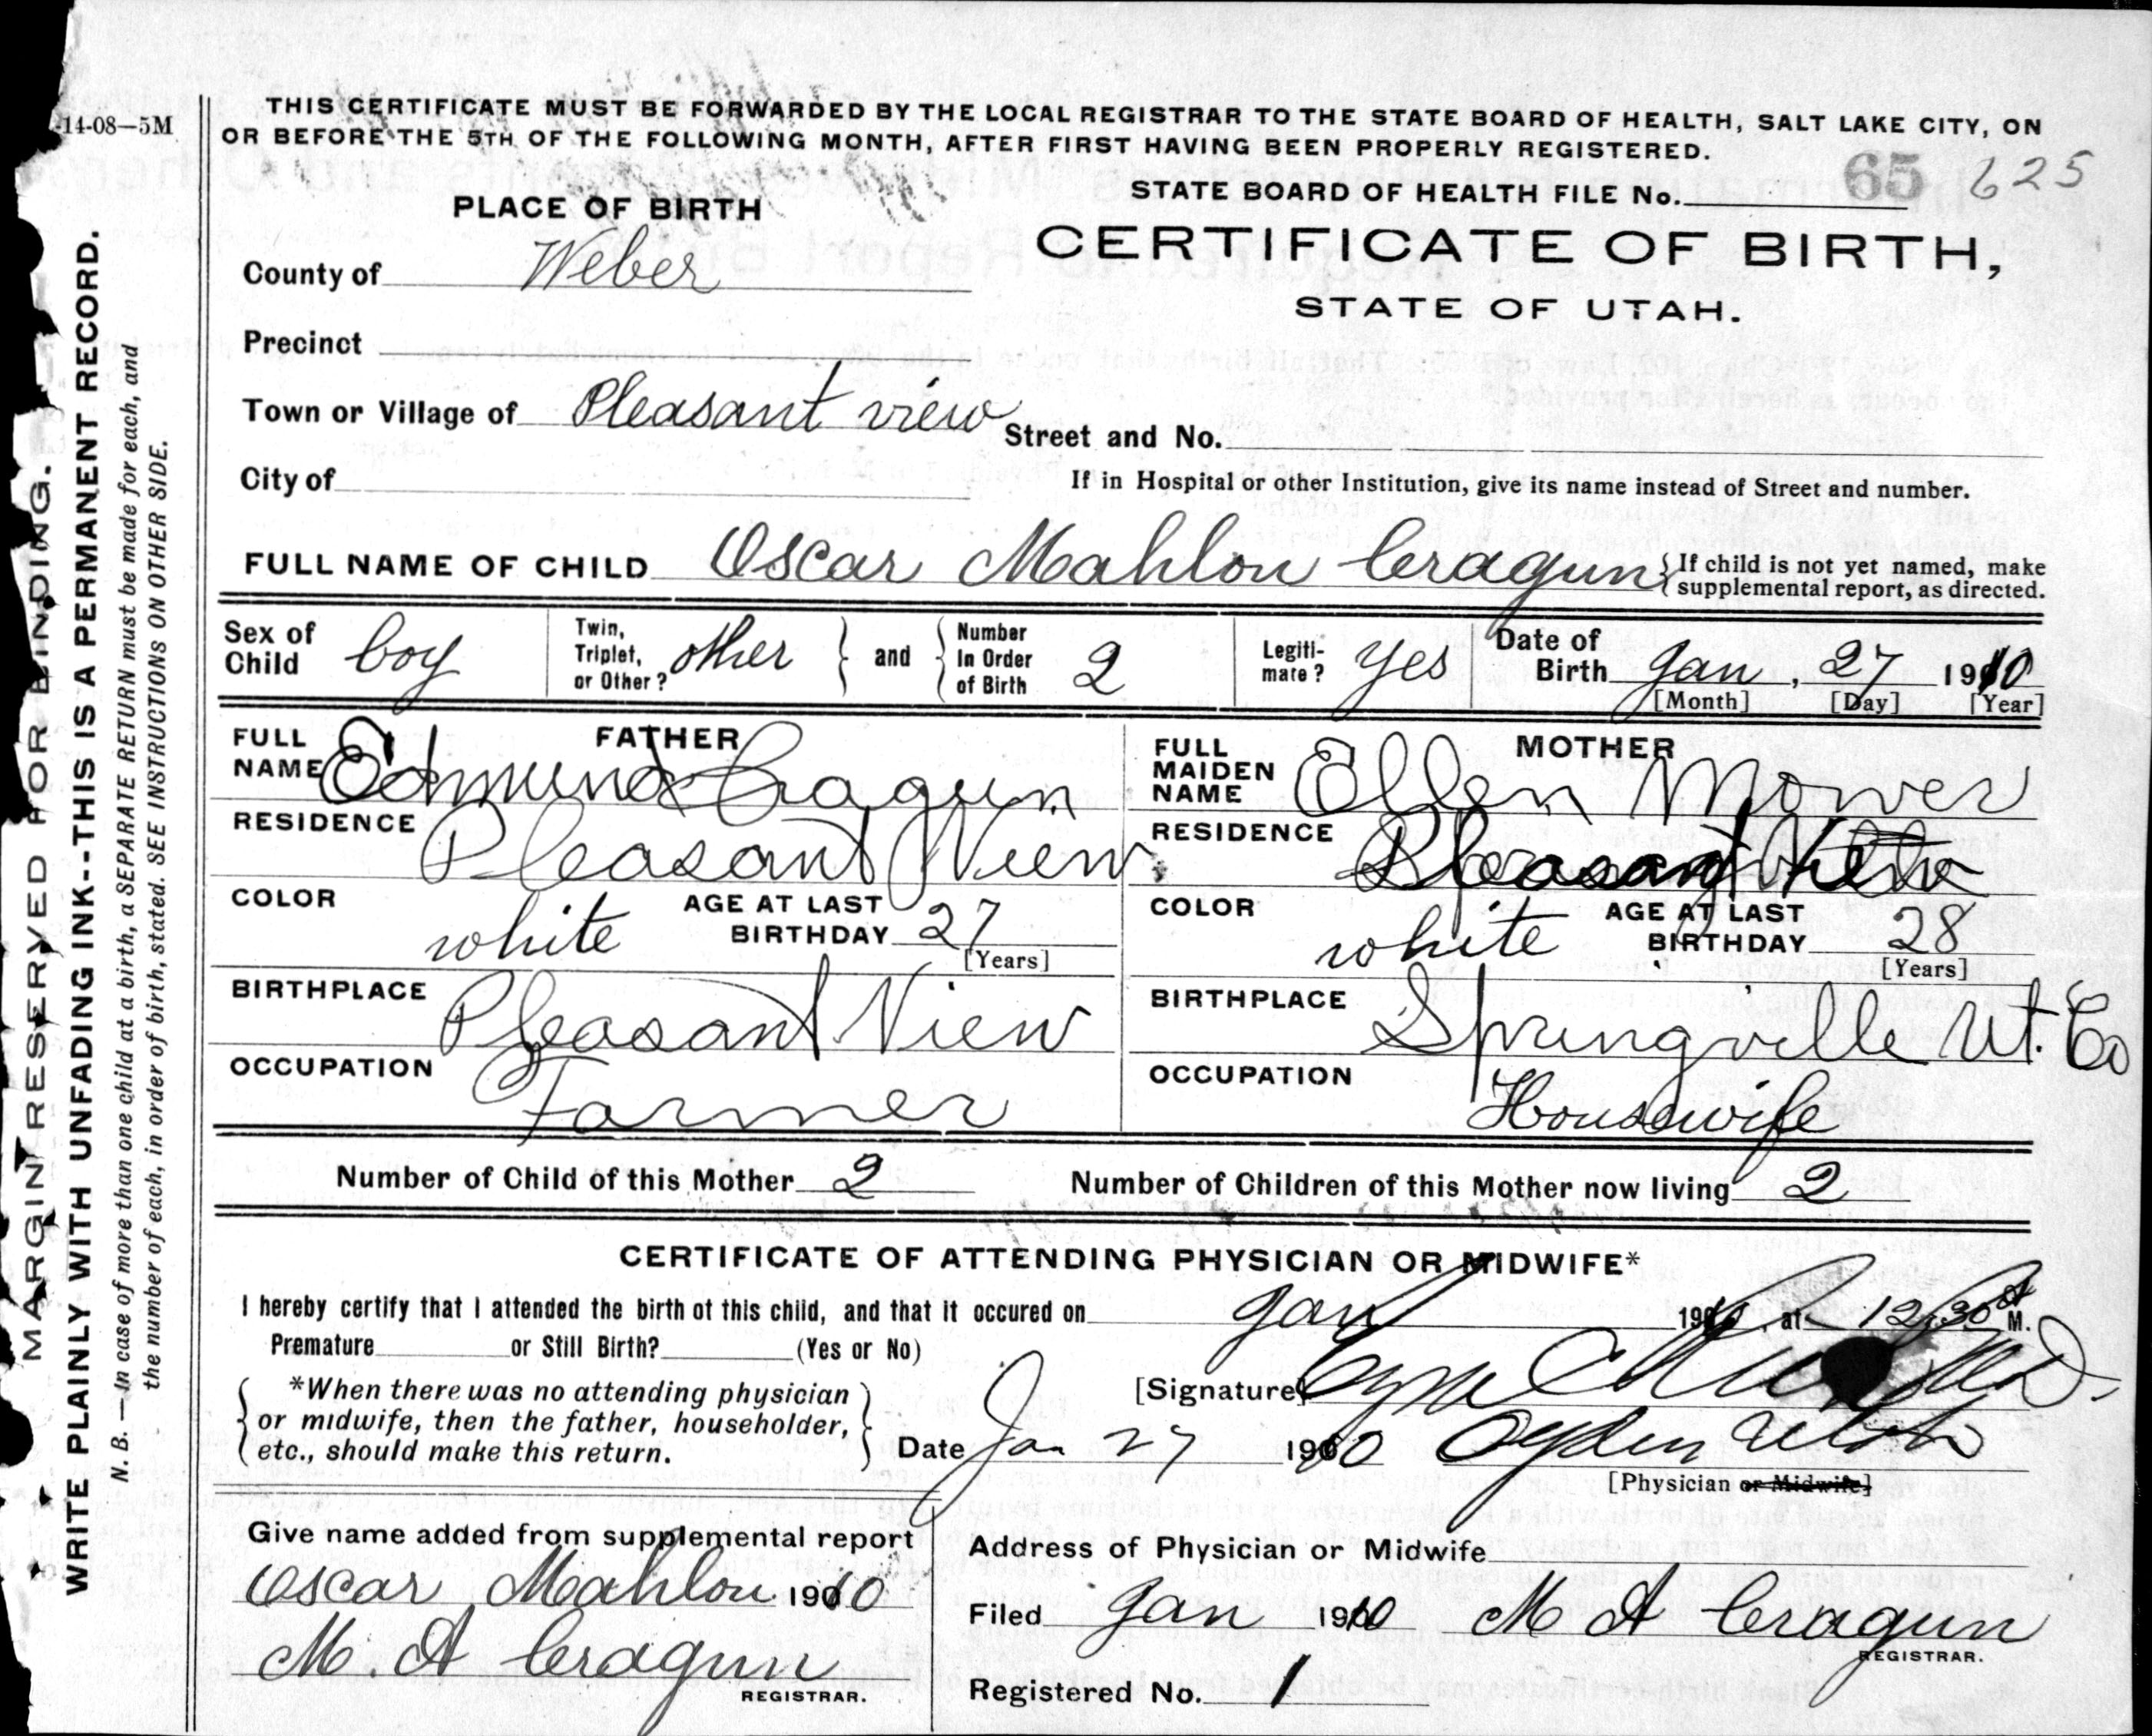 -14-08—5M
THIS CERTIFICATE MUST BE FORWARDED BY THE LOCAL REGISTRAR TO THE STATE BOARD OF HEALTH, SALT LAKE CITY, ON
OR BEFORE THE 5TH OF THE FOLLOWING MONTH, AFTER FIRST HAVING BEEN PROPERLY REGISTERED.
STATE BOARD OF HEALTH FILE No. 65 625
PLACE OF BIRTH
CERTIFICATE OF BIRTH,
STATE OF UTAH.
County of Weber
Precinct
Town or Village of Pleasant view
Street and No.
City of
If in Hospital or other Institution, give its name instead of Street and number.
FULL NAME OF CHILD Oscar Mahlon Cragun
{If child is not yet named, make
supplemental report, as directed.
Sex of Child boy
Twin, Triplet, or Other? other } and { Number In Order of Birth 2
Legiti-mate? yes
Date of Birth Jan, 27 1910
[Month] [Day] [Year]
FATHER
FULL NAME Edmund Cragun
RESIDENCE Pleasant View
COLOR white AGE AT LAST BIRTHDAY 27
[Years]
BIRTHPLACE Pleasant View
OCCUPATION Farmer
MOTHER
FULL MAIDEN NAME Ellen Mower
RESIDENCE Pleasant View
COLOR white AGE AT LAST BIRTHDAY 28
[Years]
BIRTHPLACE Springville Ut. Co
OCCUPATION Housewife
Number of Child of this Mother 2
Number of Children of this Mother now living 2
CERTIFICATE OF ATTENDING PHYSICIAN OR MIDWIFE*
I hereby certify that I attended the birth of this child, and that it occured on Jan 1910, at 12.30 A M.
Premature or Still Birth? (Yes or No)
*When there was no attending physician
or midwife, then the father, householder,
etc., should make this return.
[Signature]
Date Jan 27 1910 Ogden Utah
[Physician or Midwife]
Give name added from supplemental report
Oscar Mahlon 1910
M. A Cragun
REGISTRAR.
Address of Physician or Midwife
Filed Jan 1910 M A Cragun
REGISTRAR.
Registered No. 1
MARGIN RESERVED FOR BINDING.
WRITE PLAINLY WITH UNFADING INK--THIS IS A PERMANENT RECORD.
N. B.—In case of more than one child at a birth, a SEPARATE RETURN must be made for each, and
the number of each, in order of birth, stated. SEE INSTRUCTIONS ON OTHER SIDE.